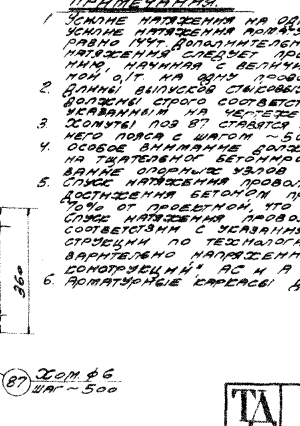 ПРИМЕЧАНИЯ
1 Усилие натяжения на од
усилие натяжения армату
равно 144т. Дополнителен
натяжения следует про
нию, начиная с величи
ной 0,1т. на одну прово
2. Длины выпусков стыковых
должны строго соответст
указанным на чертеже
3. Хомуты поз 87 ставятся
него пояса с шагом ~50
4. Особое внимание долж
на тщательног бетониро
вание опорных узлов
5. Спуск натяжения провол
достижения бетоном пр
70% от проектной, что
Спуск натяжения провол
соответствии с указани
струкции по технолог
варительно напряжен
конструкций" АС и А
6. Арматурные каркасы д
360
87 Хом. ф6
шаг ~500
ТД